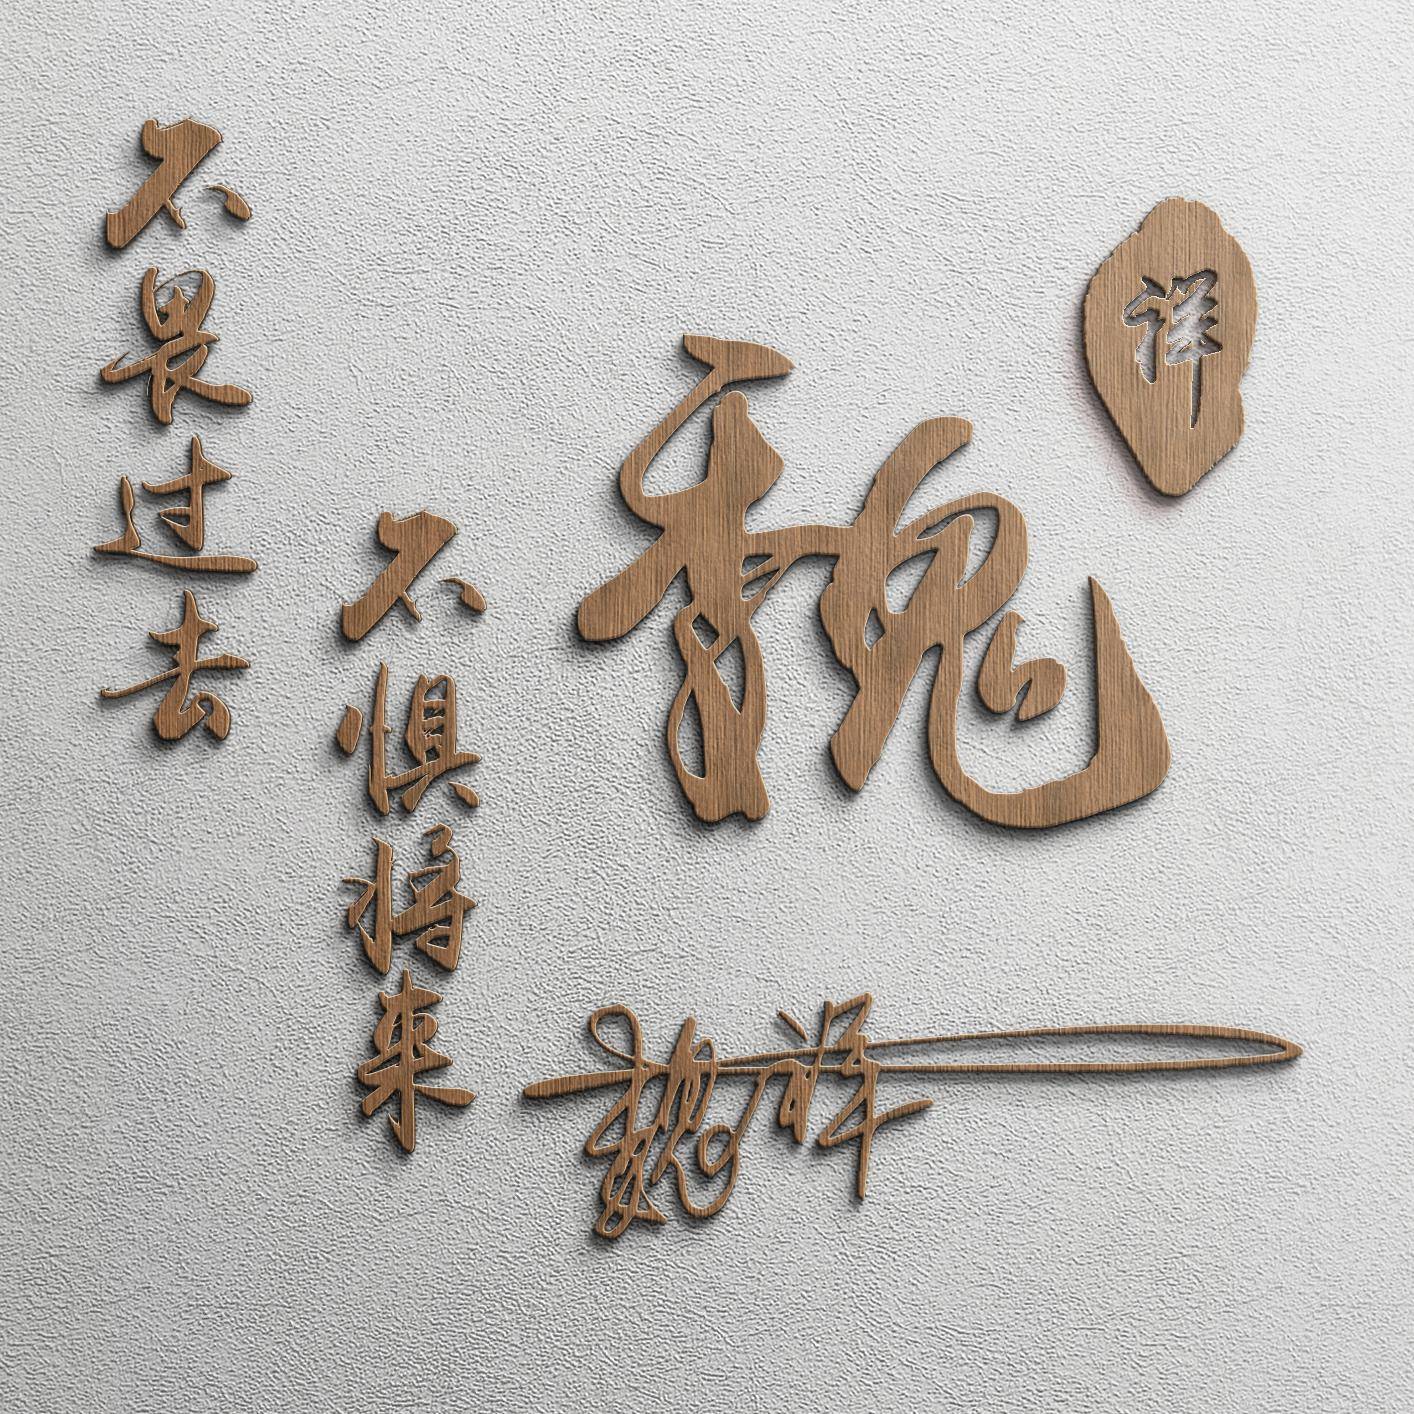 不畏过去
不惧将来
魏
祥
魏祥